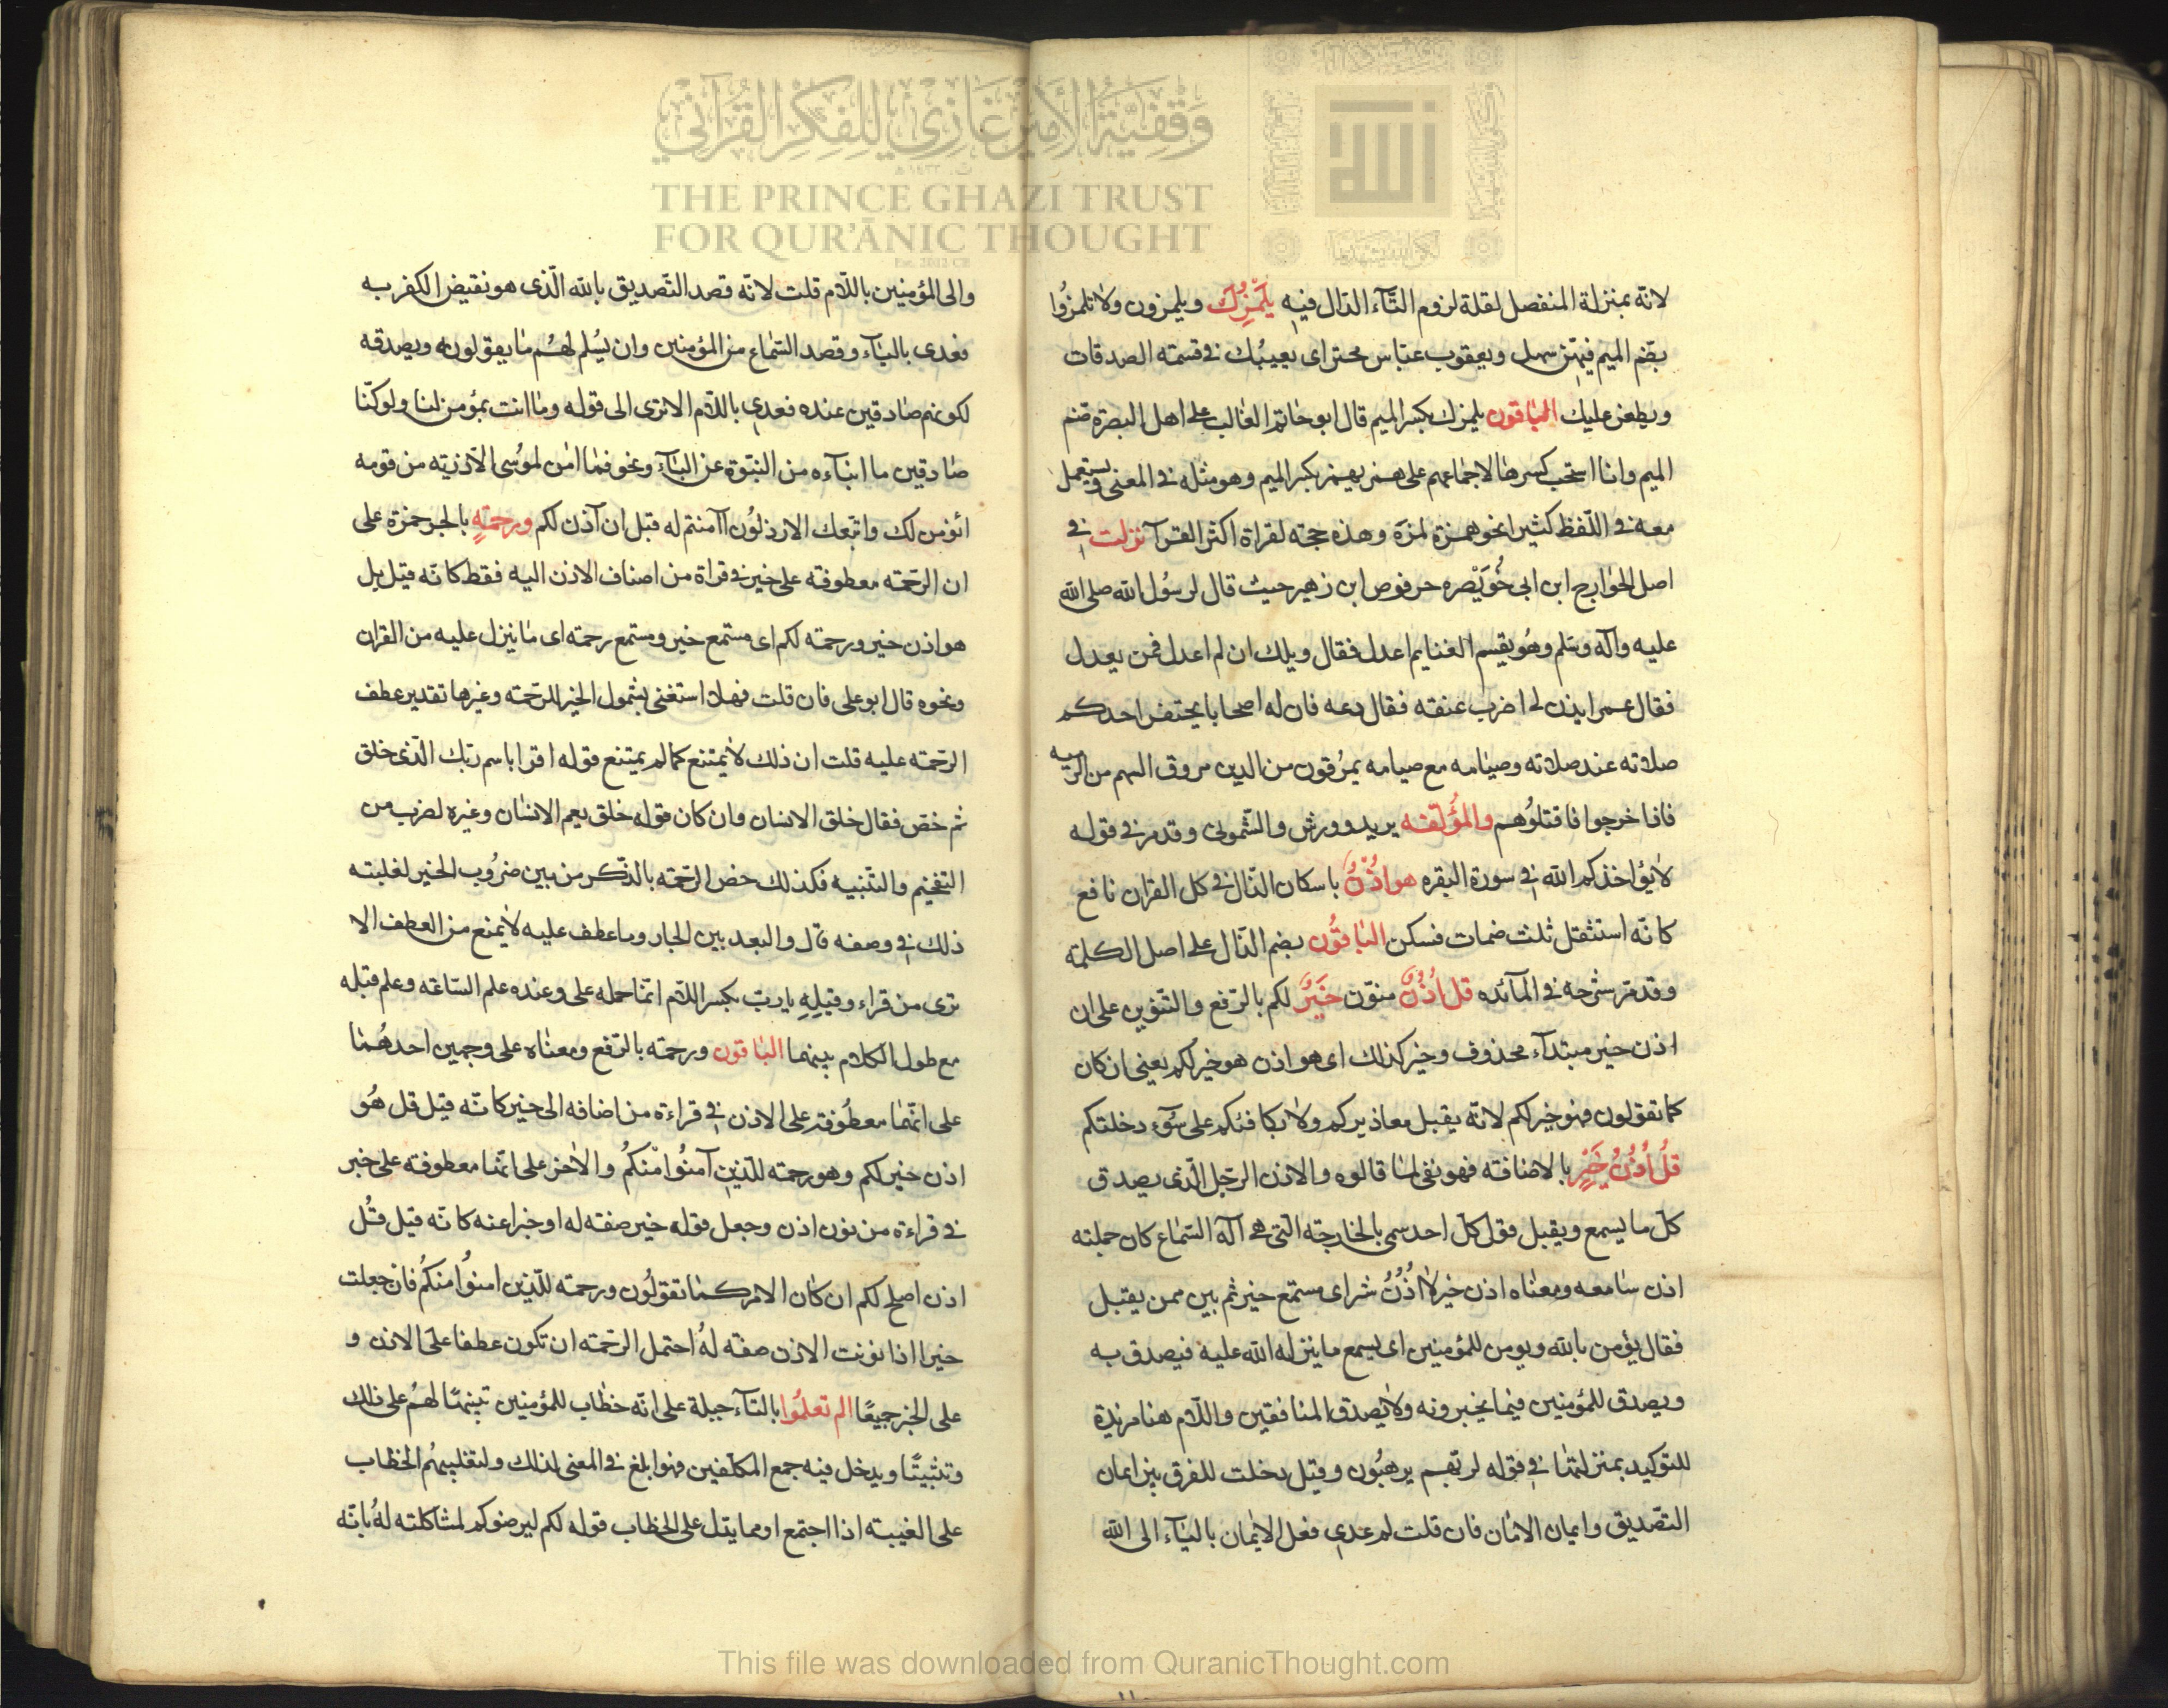 وَقْفِيَّةُ الأَمِيرِ غَازِي لِلْفِكْرِ القُرْآنِي
THE PRINCE GHAZI TRUST
FOR QUR'ĀNIC THOUGHT
لانه بمنزلة المنفصل لقلة لزوم التآء الدّال فيه يَلْمُزُكَ ويلمزون ولا تلمزُوا
بضم الميم فيهن سهل ويعقوب عباس اى يعيبُك فى قسمته الصدقات
ويطعن عليك الباقون يلمزك بكسر الميم قال ابو حاتم الغالب على اهل البصرة ضم
الميم وانا استحب كسرها لاجماعهم على همز يهمز بكسر الميم وهو مثله فى المعنى ويستعمل
معه فى اللّفظ كثيرا نحو همزة لمزة وهذه حجته لقراة اكثر القرآ نزلت فى
اصل الخوارج ابن ابى خُوَيْصره حرقوص ابن زهير حيث قال لرسُول الله صلى الله
عليه وآله وسلم وهُو يقسم الغنايم اعدل فقال ويلك ان لم اعدل فمن يعدل
فقال عمر ايذن لى اضرب عنقه فقال دعه فان له اصحابا يحتقر احدكم
صلاته عند صلاته وصيامه مع صيامه يمرُقون من الدين مروق السهم من الرميه
فاذا خرجوا فاقتلوُهم والمؤَلفه يريد وورش والشّمونى وقد مر فى قوله
لا يؤاخذكم الله فى سورة البقره هو اذُنٌ باسكان الذّال فى كل القران نافع
كانّه استثقل ثلث ضمات فسكن الباقوُن بضم الذّال على اصل الكلمة
وقد مرّ شرحه فى المآئده قل اُذُنٌ منوّن خَيرٌ لكم بالرّفع والتنوين على ان
اذن خبر مبتدآء محذوف وخير كذلك اى هو اذن هو خير لكم يعنى ان كان
كما تقولون فهو خير لكم لانّه يقبل معاذيركم ولا يكافئكم على سُوٓء دخلتكم
قُلْ اُذُنُ خَيْرٍ بالاضافته فهو نفى لما قالوه والاذن الرجل الّذى يصدق
كلّ ما يسمع ويقبل قول كلّ احد سمى بالجارحته التى هى آلة السّماع كان جملته
اذن سامعه ومعناه اذن خير لا اُذُنُ شر اى مستمع خير ثم بين ممن يقبل
فقال يؤمن بالله ويومن للمؤمنين اى يسمع ما ينزله الله عليه فيصدق به
ويصدق للمؤمنين فيما يخبرونه ولا يُصدق المنافقين واللّام هنا مزيدة
للتوكيد بمنزلتها فى قوله لربّهم يرهبُون وقيل دخلت للفرق بين ايمان
التصّديق وايمان الامان فان قلت لم عدى فعل الايمان بالبآء الى الله
والى المؤمنين باللّام قلت لانّه قصد التّصديق بالله الّذى هو نقيض الكفر به
فعدى بالبآء وقصد السّماع من المؤمنين وان يسُلم لهُم ما يقولون ويصدقه
لكونهم صادقين عنده فعدى باللّام الا ترى الى قوله وما انت بمؤمن لنا ولو كنّا
صادقين ما ابنآءه من النبّوة عن البآء ونحو فما امن لموُسى الا ذريته من قومه
انؤمن لك واتّبعك الارذلوُن آآمنتم له قبل ان آذن لكم ورحمتهٍ بالجر حمزة على
ان الرحمته معطوفته على خير فى قراة من اصناف الاذن اليه فقط كانّه قيل بل
هو اذن خير ورحمته لكم اى مستمع خير ومستمع رحمته اى ما ينزل عليه من القران
ونحوه قال ابو على فان قلت فهلّا استغنى بشمول الخير الرحمته وغيرها تقدير عطف
الرحمته عليه قلت ان ذلك لا يمتنع كما لم يمتنع قوله اقرا باسم ربّك الّذى خلق
ثم خصّ فقال خلق الانسان وان كان قوله خلق يعم الانسان وغيره لضرب من
التفخيم والتّنبيه فكذلك خصّ الرحّمته بالذّكر من بين ضرُوب الخير لغلبته
ذلك فى وصفه قال والبعد بين الجار وما عطف عليه لا يمنع من العطف الا
ترى من قراء وقيلِهِ ياربّ بكسر اللّام انمّا حمله على وعنده علم السّاعته وعلم قيله
مع طول الكلام بينهما الباقون ورحمته بالرّفع ومعناه على وجهين احدهُما
على انّها معطُوفته على الاذن فى قراءة من اضافه الى خير كانّه قيل قل هُو
اذن خير لكم وهو رحمته للّذين آمنُوا مْنكمُ والاخر على انّها معطوفته على خير
فى قراءة من نون اذن وجعل قوله خير صفته له او خبرا عنه كانّه قيل قُل
اذن اصلح لكم ان كان الامر كما تقولوُن ورحمته للّذين امنوُا منكمُ فانْ جعلت
خيرا اذا نونت الاذن صفته لهُ احتمل الرحّمته ان تكون عطفا على الاذن و
على الخبر جميعًا الم تعلمُوا بالتآء جبلة على انّه خطاب للمؤمنين تنبيهًا لهُم على ذلك
وتثبيتًا ويدخل فيه جمع المكلّفين فهو ابلغ فى المعنى لذلك ولتغليبهُم الخطاب
على الغيبته اذا اجتمع او مما يدّل على الخطاب قوله لكم ليرضوكم لمشاكلته لهُ بانّه
This file was downloaded from QuranicThought.com